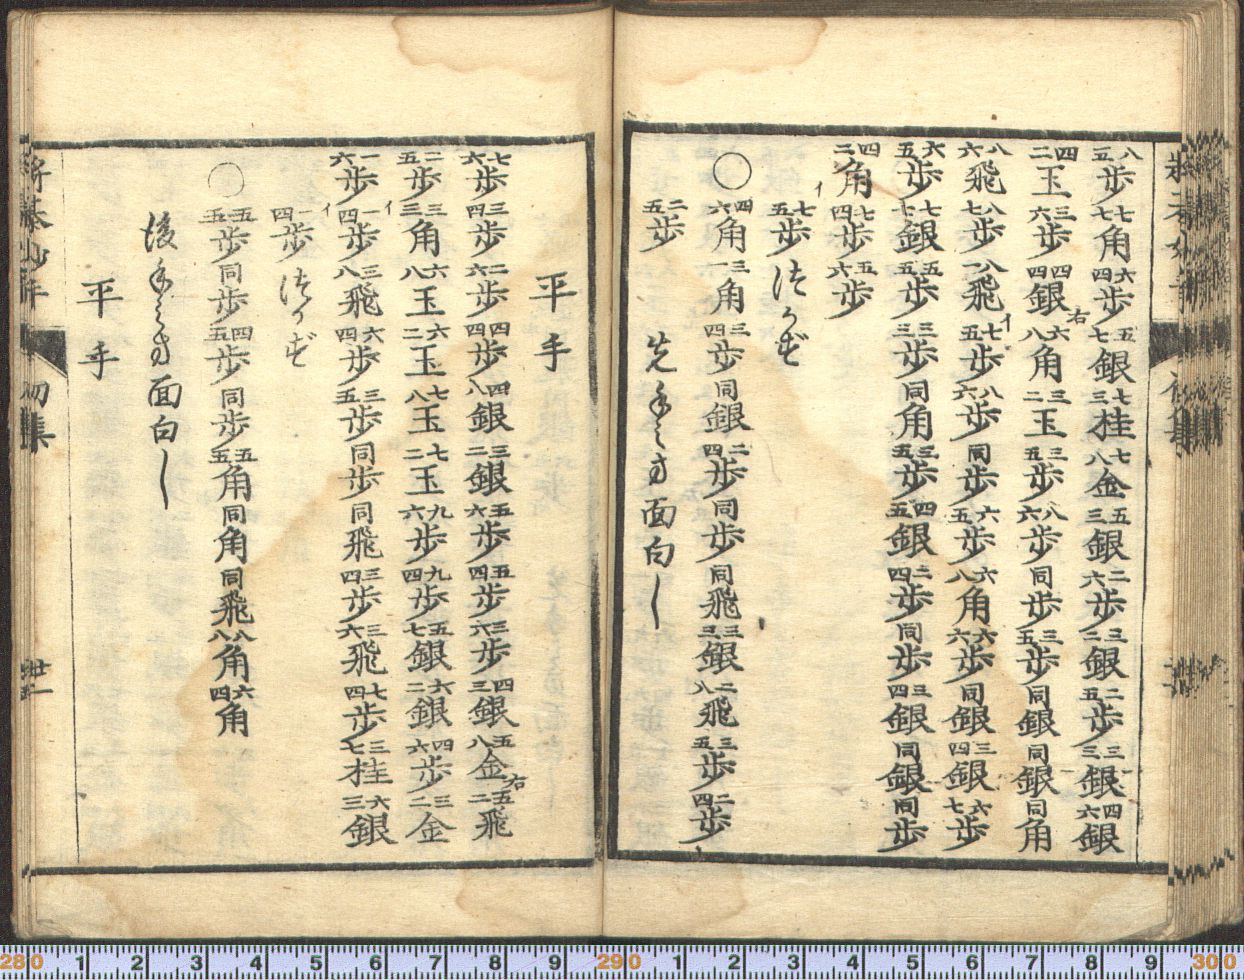 八五歩 七七角 六四歩 五七銀 七三桂 七八金 五三銀 二六歩 三二銀 二五歩 三三銀 四六銀
四二玉 三六歩 四四銀右 六八角 三二玉 三五歩 八六歩 同歩 三五歩 同銀 同銀 同角
八六飛 八七歩 八二飛 イ七五歩 八六歩 同歩 六五歩 六八角 六六歩 同銀 三四銀 六七歩
六五歩 七七銀 五五歩 三三歩 同角 三五歩 四五銀 二四歩 同歩 三四銀 同銀 同歩
四二角 七四歩 五六歩
イ七五歩
○ 四六角 三一角 三四歩 同銀 二四歩 同歩 同飛 三三銀 二八飛 三五歩 二四歩
二五歩 先手之方面白し
平手
七六歩 三四歩 二六歩 四四歩 四八銀 三二銀 五六歩 五四歩 三六歩 四三銀 五八金右 五二飛
二五歩 三三角 六八玉 六二玉 七八玉 七二玉 九六歩 九四歩 五七銀 六二銀 四六歩 三二金
一六歩 イ一四歩 三八飛 六四歩 三五歩 同歩 同飛 三四歩 三六飛 七四歩 三七桂 六三銀
イ一四歩
○ 五五歩 同歩 四五歩 同歩 五五角 同角 同飛 八八角 六四角
後手之方面白し
平手
初集
280 1 2 3 4 5 6 7 8 9 290 1 2 3 4 5 6 7 8 9 300